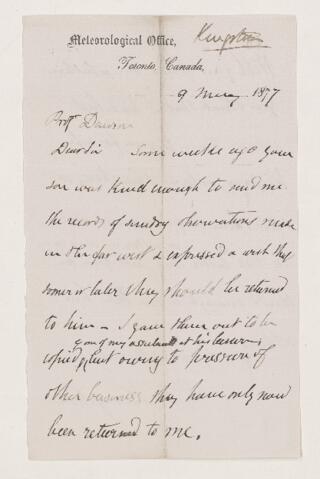 Kingston
Meteorological Office,
Toronto, Canada,
9 May 1877
Profr Dawson
Dear Sir Some weeks ago your
son was kind enough to send me
the records of sundry observations made
in the far west & expressed a wish they
sooner or later they should be returned
to him – I gave them out to be
copied by one of my assistants at his leisure,
but owing to pressure of
other business they have only now
been returned to me.